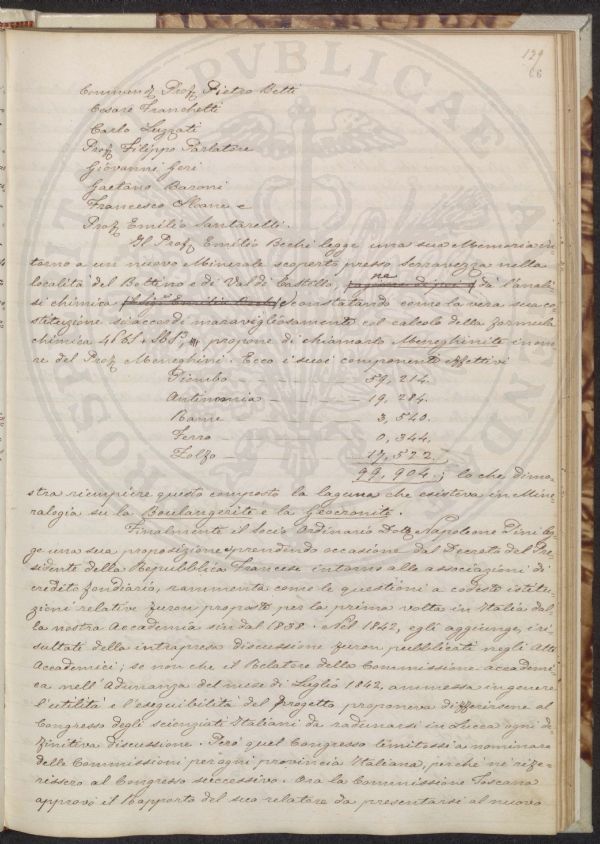 139
66
Commend. Prof. Pietro Betti
Cesare Franchetti
Carlo Luzzati
Prof. Filippo Parlatore
Giovanni Geri
Gaetano Baroni
Francesco Sloane e
Prof. Emilio Santarelli.
Il Prof. Emilio Bechi legge una sua Memoria in-
torno a un nuovo Minerale scoperto presso Serravezza nella
località del Bottino e di Val di Castello, ne dà l'anali-
si chimica, e constatando come la vera sua co-
stituzione si accorde maravigliosamente col calcolo della formula
chimica propone di chiamarlo Meneghinite in ono-
re del Prof. Meneghini. Ecco i suoi componenti effettivi
Piombo - - - - - 59,214.
Antimonio - - - - - 19,284
Rame - - - - - 3,540.
Ferro - - - - - 0,344.
Zolfo - - - - - 17,522
99,904.; lo che dimo-
stra riempiere questo composto la laguna che esisteva in Mine-
ralogia su la Boulangerite e la Geocronite.
Finalmente il Socio Ordinario Dott. Napoleone Pini leg-
ge una sua proposizione e prendendo occasione dal Decreto del Pre-
sidente della Repubblica Francese intorno alle associazioni di
credito fondiario, rammenta come le questioni a codeste istitu-
zioni relative furon proposte per la prima volta in Italia dal-
la nostra Accademia sin dal 1838. Nel 1842, egli aggiunge, i ri-
sultati della intrapresa discussione furon pubblicati negli Atti
Accademici; se non che il Relatore della Commissione accademi-
ca nell'Adunanza del mese di Luglio 1842, ammessa in genere
l'utilità e l'eseguibilità del Progetto proponeva di differirsene al
Congresso degli scienziati Italiani da radunarsi in Lucca ogni de-
finitiva discussione. Però quel Congresso limitossi a nominare
delle Commissioni per ogni provincia Italiana, perché ne rife-
rissero al Congresso successivo. Ora la Commissione Toscana
approvò il Rapporto del suo relatore da presentarsi al nuovo